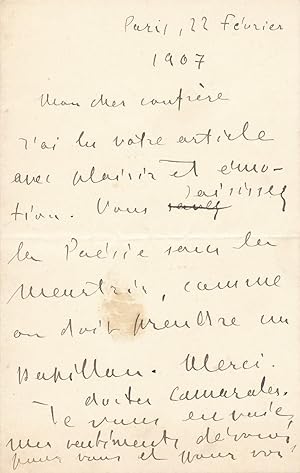 Paris, 22 Février
1907
Mon cher confrère
J'ai lu votre article
avec plaisir et émo-
tion. Vous saisissez
la Poésie sans la
meurtrir, comme
on doit prendre un
papillon. Merci.
Je vous envoie
mes sentiments dévoués,
pour vous et pour vos